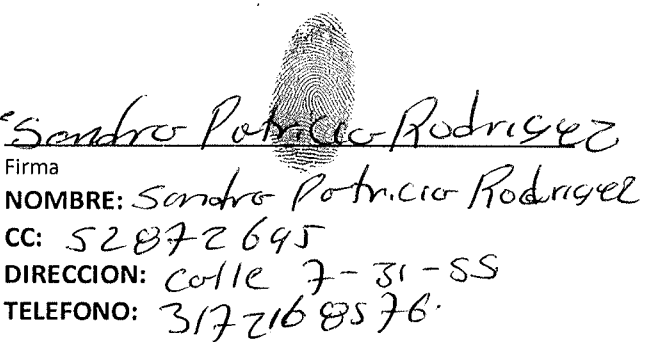 Sandra Patricia Rodriguez
Firma
NOMBRE: Sandra Patricia Rodriguez
CC: 52872695
DIRECCION: Calle 7-31-55
TELEFONO: 3172168576.